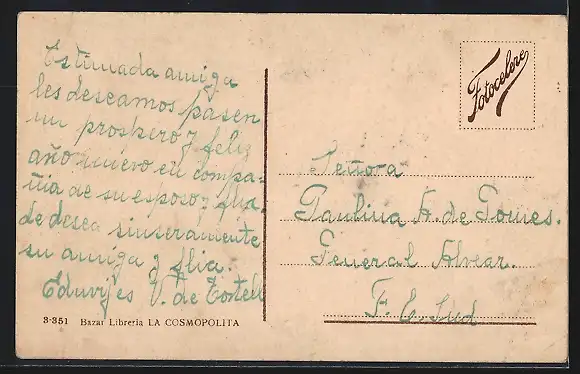 Estimada amiga
les deseamos pasen
un prospero y feliz
año nuevo en compa-
ñia de su esposo y flia.
le desea sinseramente
su amiga y flia.
Eduvijes V. de Tostell
3-351 Bazar Libreria LA COSMOPOLITA
Fotocelere
Señora
Paulina A. de Gomes.
General Alvear.
F. C. Sud